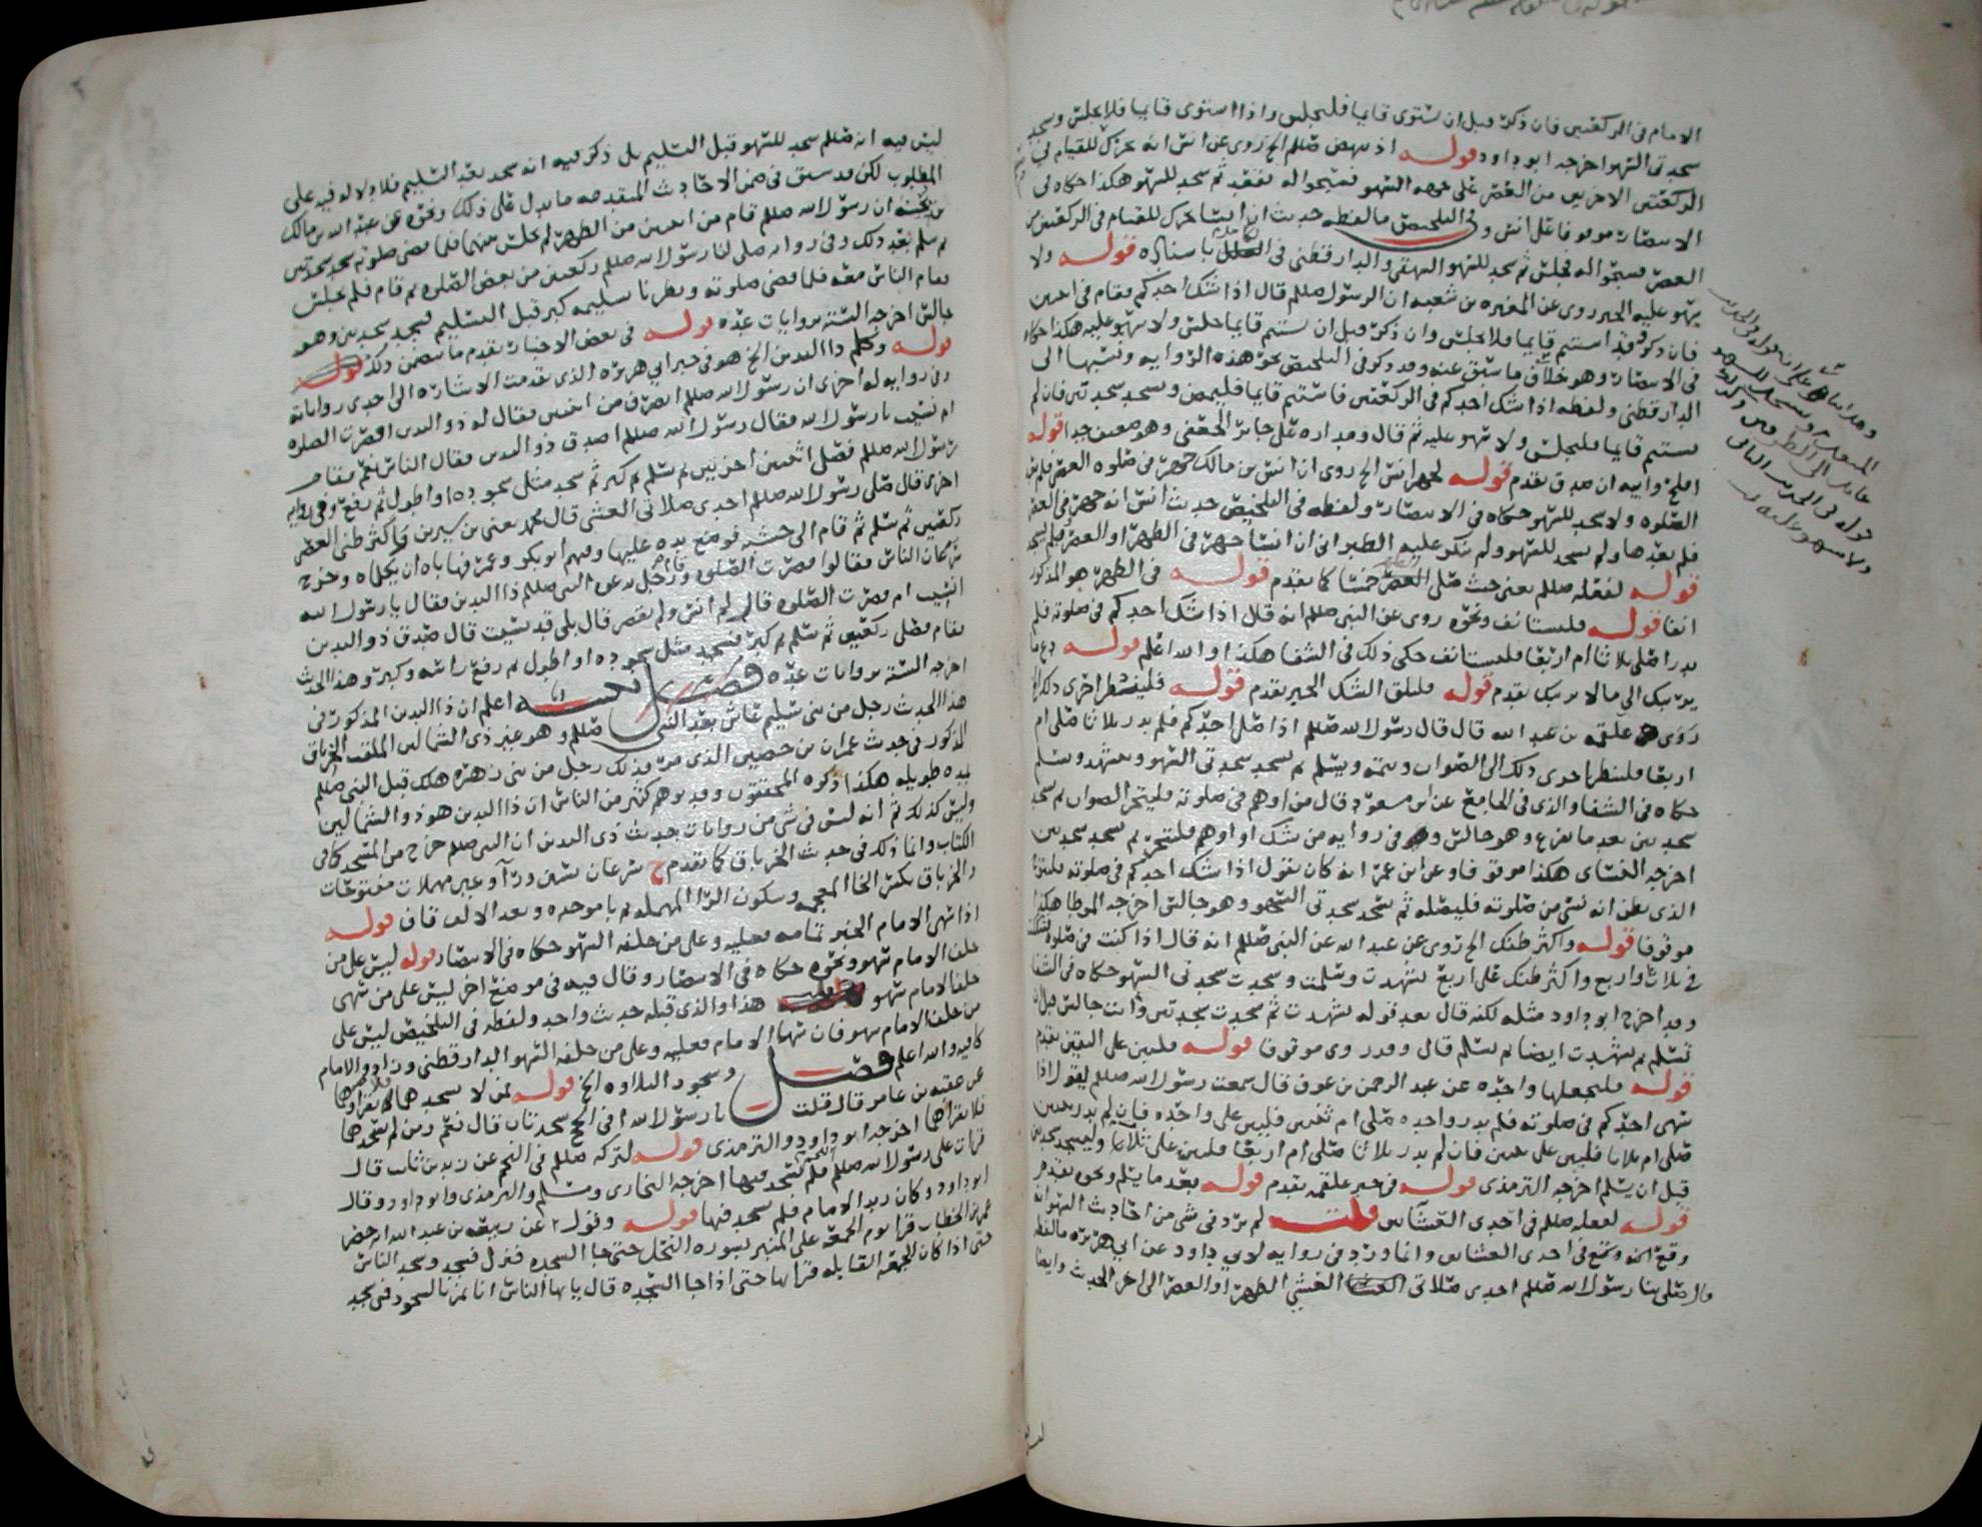 الامام فى الركعتين فان ذكر قبل ان يستوى قايما فليجلس واذا استوى قايما فلا يجلس ويسجد
سجدتى السهو اخرجه ابو داود قوله اذ نهض صللم الخ روى عن انس انه تحرك للقيام فى
الركعتين الاخريين من العصر على جهة السهو فسبحوا له فقعد ثم سجد للسهو هكذا حكاه فى
الانتصار موقوفا على انس وفى التلخيص ما لفظه حديث ان انسا تحرك للقيام فى الركعتين من
العصر فسبحوا له فجلس ثم سجد للسهو البيهقى والدارقطنى فى باسناده قوله ولا
يسهو عليه الخبر روى عن المغيره بن شعبه ان الرسول صللم قال اذا شك احدكم فقام فى اخريين
فان ذكر وقد استتم قايما فلا يجلس وان ذكر قبل ان يستتم قايما جلس ولا سهو عليه هكذا حكاه
فى الانتصار وهو خلاف ما سبق عنه وقد ذكر فى التلخيص نحو هذه الروايه ونسبها الى
الدارقطنى ولفظه اذا شك احدكم فى الركعتين فاستتم قايما فليمض وليسجد سجدتين فان لم
يستتم قايما فليجلس ولا سهو عليه ثم قال ومداره على جابر الجعفى وهو ضعيف جدا قوله
افلح وابيه ان صدق تقدم قوله لجهر انس الخ روى ان انس بن مالك جهر فى صلوه العصر فلم
الصلوه ولا سجد للسهو حكاه فى الانتصار ولفظه فى التلخيص حديث انس انه جهر فى العصر
فلم يعدها ولم يسجد للسهو ولم ينكر عليه الطبرانى ان انسا جهر فى الظهر او العصر فلم يسجد
قوله لفعله صللم يعنى حيث صلى العصر خمسا كما تقدم قوله فى الظهر هو المذكور
انفا قوله فليستانف ونحوه روى عن النبى صللم انه قال اذا شك احدكم فى صلوته فلم
يدر اصلى ثلاثا ام اربعا فليستانف حكى ذلك فى الشفا هكذا والله اعلم قوله دع ما
يريبك الى ما لا يريبك تقدم قوله فليلق الشك الخبر تقدم قوله فلينظر احرى ذلك الخ
روى علقمه بن عبد الله قال قال رسول الله صللم اذا صلى احدكم فلم يدر ثلاثا صلى ام
اربعا فلينظر احرى ذلك الى الصواب ويتمه ويسلم ثم يسجد سجدتى السهو ويتشهد ويسلم
حكاه فى الشفا والذى فى الجامع عن ابن مسعود قال من اوهم فى صلوته فليتحر الصواب ثم يسجد
سجدتين بعد ما يفرغ وهو جالس وفى روايه من شك او اوهم فليتحر ثم يسجد سجدتين
اخرجه النسائى هكذا موقوفا وعن ابن عمر انه كان يقول اذا شك احدكم فى صلوته فليتوخ
الذى يظن انه نسى من صلوته فليصله ثم يسجد سجدتى السهو وهو جالس اخرجه الموطا هكذا
موقوفا قوله واكثر ظنك الخ روى عن عبد الله عن النبى صللم انه قال اذا كنت فى صلوه فشككت
فى ثلاث واربع واكثر ظنك على اربع تشهدت وسلمت وسجدت سجدتى السهو حكاه فى الشفا
وقد اخرج ابو داود مثله لكنه قال بعد قوله تشهدت ثم سجدت سجدتين وانت جالس قبل ان
تسلم ثم تشهدت ايضا ثم تسلم قال وقد روى موقوفا قوله فليبن على اليقين تقدم
قوله فليجعلها واحده عن عبد الرحمن بن عوف قال سمعت رسول الله صللم يقول اذا
سهى احدكم فى صلوته فلم يدر واحده صلى ام ثنتين فليبن على واحده فان لم يدر ثنتين
صلى ام ثلاثا فليبن على ثنتين فان لم يدر ثلاثا صلى ام اربعا فليبن على ثلاثا وليسجد سجدتين
قبل ان يسلم اخرجه الترمذى قوله فى خبر علقمه تقدم قوله بعد ما يسلم ونحوه تقدم
قوله لفعله صللم فى احدى العشاين قلت لم يرد فى شى من احاديث السهو انه
وقع منه وسجع فى احدى العشاين وانما ورد فى روايه لابى داود عن ابى هريره ما لفظه
قال صلى بنا رسول الله صللم احدى صلاتى العشى الظهر او العصر الى اخر الحديث وايضا
ليس فيه انه صللم سجد للسهو قبل التسليم بل ذكر فيه انه سجد بعد التسليم فلا دلاله فيه على
المطلوب لكن قد سبق فى ضمن الاحاديث المتقدمه ما يدل على ذلك ونحوه عن عبد الله بن مالك
بن بحينه ان رسول الله صللم قام من اثنتين من الظهر لم يجلس بينهما فلما قضى صلوته سجد سجدتين
ثم سلم بعد ذلك وفى روايه صلى لنا رسول الله صللم ركعتين من بعض الصلوه ثم قام فلم يجلس
فقام الناس معه فلما قضى صلوته ونظرنا تسليمه كبر قبل التسليم فسجد سجدتين وهو
جالس اخرجه الستة بروايات عده قوله فى بعض الاخبار تقدم ما يتضمن ذلك
قوله وكلم ذا اليدين الخ هو فى خبر ابى هريره الذى تقدمت الاشاره الى احدى رواياته
وفى روايه له اخرى ان رسول الله صللم انصرف من اثنتين فقال له ذو اليدين اقصرت الصلوه
ام نسيت يا رسول الله فقال رسول الله صللم اصدق ذو اليدين فقال الناس نعم فقام
رسول الله صللم فصلى اثنتين اخريين ثم سلم ثم كبر ثم سجد مثل سجوده او اطول ثم رفع وفى روايه
اخرى قال صلى رسول الله صللم احدى صلاتى العشى قال محمد يعنى بن سيرين واكثر ظنى العصر
ركعتين ثم سلم ثم قام الى خشبه فوضع يده عليها وفيهم ابو بكر وعمر فهاباه ان يكلماه وخرج
سرعان الناس فقالوا قصرت الصلوه ورجل يدعوه النبى صللم ذا اليدين فقال يا رسول الله
انسيت ام قصرت الصلوه قال لم انس ولم تقصر قال بلى قد نسيت قال صدق ذو اليدين
فقام فصلى ركعتين ثم سلم ثم كبر فسجد مثل سجوده او اطول ثم رفع راسه وكبر وهذا الحديث
اخرجه الستة بروايات عده فصل اعلم ان ذا اليدين المذكور فى
هذا الحديث رجل من بنى سليم عاش بعد النبى صللم وهو غير ذى الشمالين الملقب الخرباق
المذكور فى حديث عمران بن حصين الذى مر وذلك رجل من بنى زهره هلك قبل النبى صللم
بمده طويله هكذا ذكره المحققون وقد توهم كثير من الناس ان ذا اليدين هو ذو الشمالين
وليس كذلك ثم انه ليس فى شى من روايات حديث ذى اليدين ان النبى صللم خرج من المسجد كما فى
الكتاب وانما ذلك فى حديث الخرباق كما تقدم ح سرعان بسين ورآ وعين مهملات مفتوحات
والخرباق بكسر الخا المعجمه وسكون الرا المهمله ثم با موحده وبعد الالف قاف قوله
اذا سهى الامام الخبر تمامه فعليه وعلى من خلفه السهو حكاه فى الانتصار قوله ليس على من
خلف الامام سهو ونحوه حكاه فى الانتصار وقال فيه فى موضع اخر ليس على من سهى
خلف الامام سهو هذا والذى قبله حديث واحد ولفظه فى التلخيص ليس على
من خلف الامام سهو فان سها الامام فعليه وعلى من خلفه السهو الدارقطنى وزاد والامام
كافيه والله اعلم فصل وسجود التلاوه الخ قوله لمن لا يسجدها فلا يقراها
عن عقبه بن عامر قال قلت يا رسول الله افى الحج سجدتان قال نعم ومن لم يسجدهما
فلا يقراهما اخرجه ابو داود والترمذى قوله لتركه صللم فى النجم عن زيد بن ثابت قال
قرات على رسول الله صللم النجم فلم يسجد فيها اخرجه البخارى ومسلم والترمذى وابو داود وقال
ابو داود وكان زيد الامام فلم يسجد فيها قوله وفزل عن ربيعه بن عبد الله انه حضر
عمر بن الخطاب قرا يوم الجمعه على المنبر بسوره النحل حتى جا السجده فنزل فسجد وسجد الناس
حتى اذا كان الجمعه القابله قرا بها حتى اذا جا السجده قال يا ايها الناس انا نمر بالسجود فمن سجد